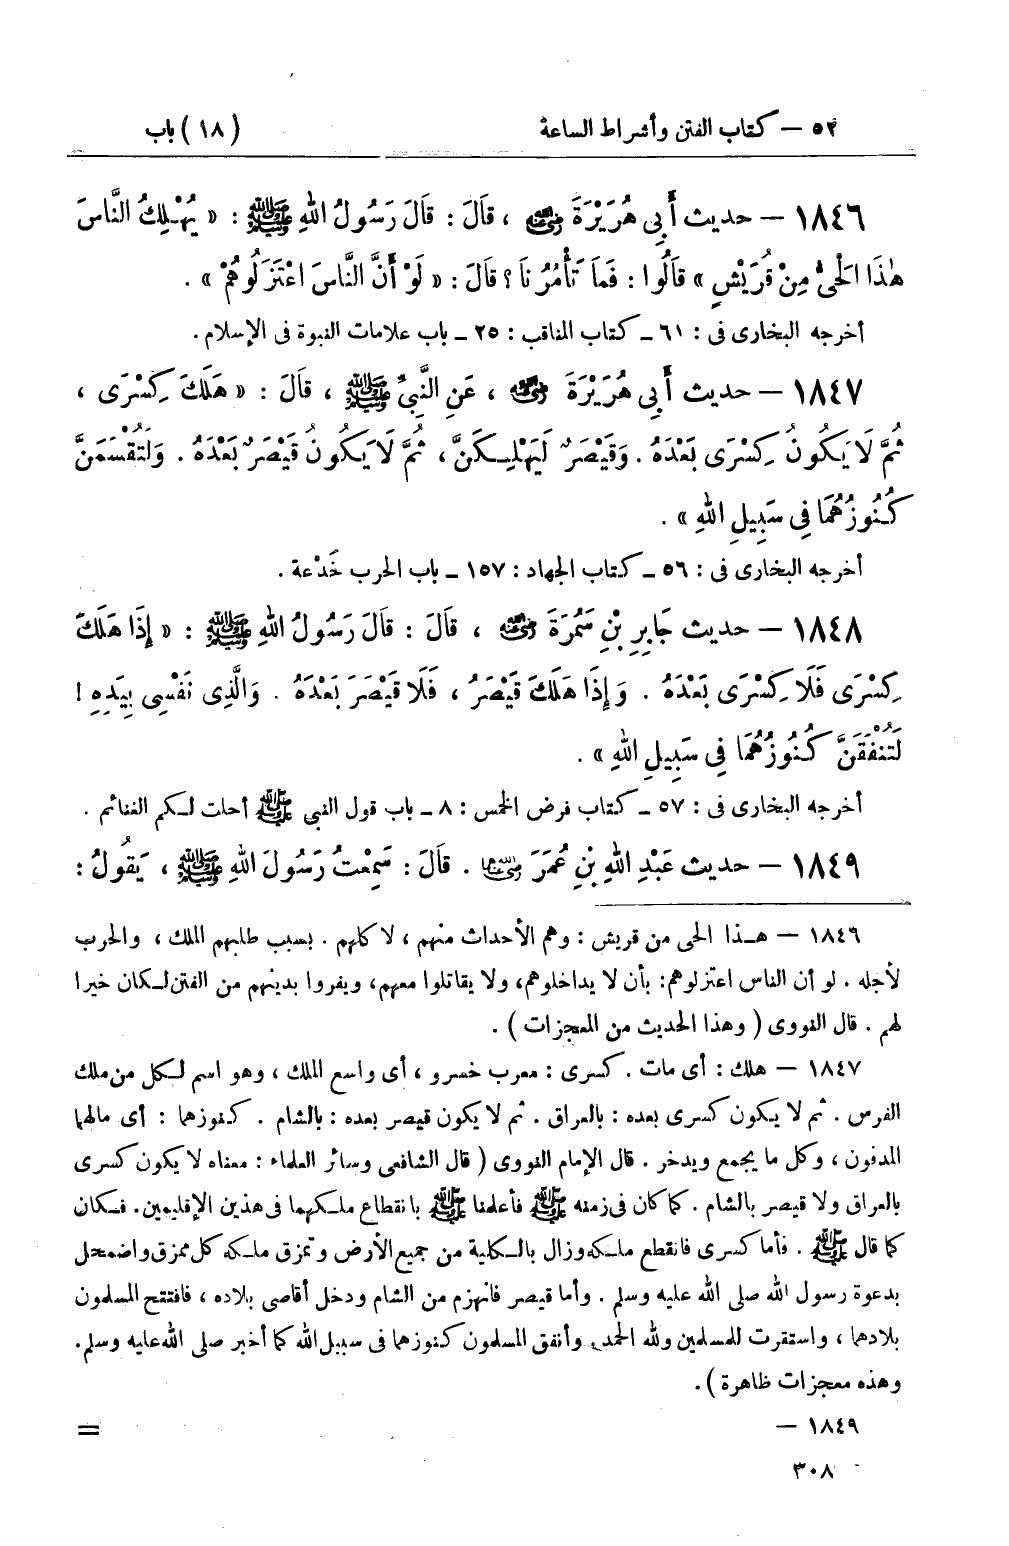 ٥٢ – كتاب الفتن وأشراط الساعة (١٨) باب
١٨٤٦ – حديث أَبِي هُرَيْرَةَ رضي الله عنه ، قَالَ : قَالَ رَسُولُ اللهِ ﷺ : « يُهْلِكُ النَّاسَ
هٰذَا الْحَيُّ مِنْ قُرَيْشٍ » قَالُوا : فَمَا تَأْمُرُنَا ؟ قَالَ : « لَوْ أَنَّ النَّاسَ اعْتَزَلُوهُمْ » .
أخرجه البخارى فى : ٦١ ـ كتاب المناقب : ٢٥ ـ باب علامات النبوة فى الإسلام .
١٨٤٧ – حديث أَبِي هُرَيْرَةَ رضي الله عنه ، عَنِ النَّبِيِّ ﷺ ، قَالَ : « هَلَكَ كِسْرَى ،
ثُمَّ لَا يَكُونُ كِسْرَى بَعْدَهُ . وَقَيْصَرٌ لَيَهْلِكَنَّ ، ثُمَّ لَا يَكُونُ قَيْصَرٌ بَعْدَهُ . وَلَتُقْسَمَنَّ
كُنُوزُهُمَا فِي سَبِيلِ اللهِ » .
أخرجه البخارى فى : ٥٦ ـ كتاب الجهاد : ١٥٧ ـ باب الحرب خَدْعة .
١٨٤٨ – حديث جَابِرِ بْنِ سَمُرَةَ رضي الله عنه ، قَالَ : قَالَ رَسُولُ اللهِ ﷺ : « إِذَا هَلَكَ
كِسْرَى فَلَا كِسْرَى بَعْدَهُ . وَإِذَا هَلَكَ قَيْصَرُ ، فَلَا قَيْصَرَ بَعْدَهُ . وَالَّذِى نَفْسِى بِيَدِهِ !
لَتُنْفَقَنَّ كُنُوزُهُمَا فِي سَبِيلِ اللهِ » .
أخرجه البخارى فى : ٥٧ ـ كتاب فرض الخمس : ٨ ـ باب قول النبى ﷺ أحلت لكم الغنائم .
١٨٤٩ – حديث عَبْدِ اللهِ بْنِ عُمَرَ رضي الله عنهما . قَالَ : سَمِعْتُ رَسُولَ اللهِ ﷺ ، يَقُولُ :
١٨٤٦ – هذا الحى من قريش : وهم الأحداث منهم ، لا كلهم . بسبب طلبهم الملك ، والحرب
لأجله . لو أن الناس اعتزلوهم: بأن لا يداخلوهم، ولا يقاتلوا معهم، ويفروا بدينهم من الفتن لكان خيرا
لهم . قال النووى ( وهذا الحديث من المعجزات ) .
١٨٤٧ – هلك : أى مات . كسرى : معرب خسرو ، أى واسع الملك ، وهو اسم لكل من ملك
الفرس . ثم لا يكون كسرى بعده : بالعراق . ثم لا يكون قيصر بعده : بالشام . كنوزهما : أى مالهما
المدفون ، وكل ما يجمع ويدخر . قال الإمام النووى ( قال الشافعى وسائر العلماء : معناه لا يكون كسرى
بالعراق ولا قيصر بالشام . كما كان فى زمنه ﷺ فأعلمنا ﷺ بانقطاع ملكهما فى هذين الإقليمين. فكان
كما قال ﷺ . فأما كسرى فانقطع ملكه وزال بالكلية من جميع الأرض وتمزق ملكه كل ممزق واضمحل
بدعوة رسول الله صلى الله عليه وسلم . وأما قيصر فانهزم من الشام ودخل أقاصى بلاده ، فافتتح المسلمون
بلادهما ، واستقرت للمسلمين ولله الحمد. وأنفق المسلمون كنوزهما فى سبيل الله كما أخبر صلى الله عليه وسلم.
وهذه معجزات ظاهرة ) .
١٨٤٩ – =
٣٠٨